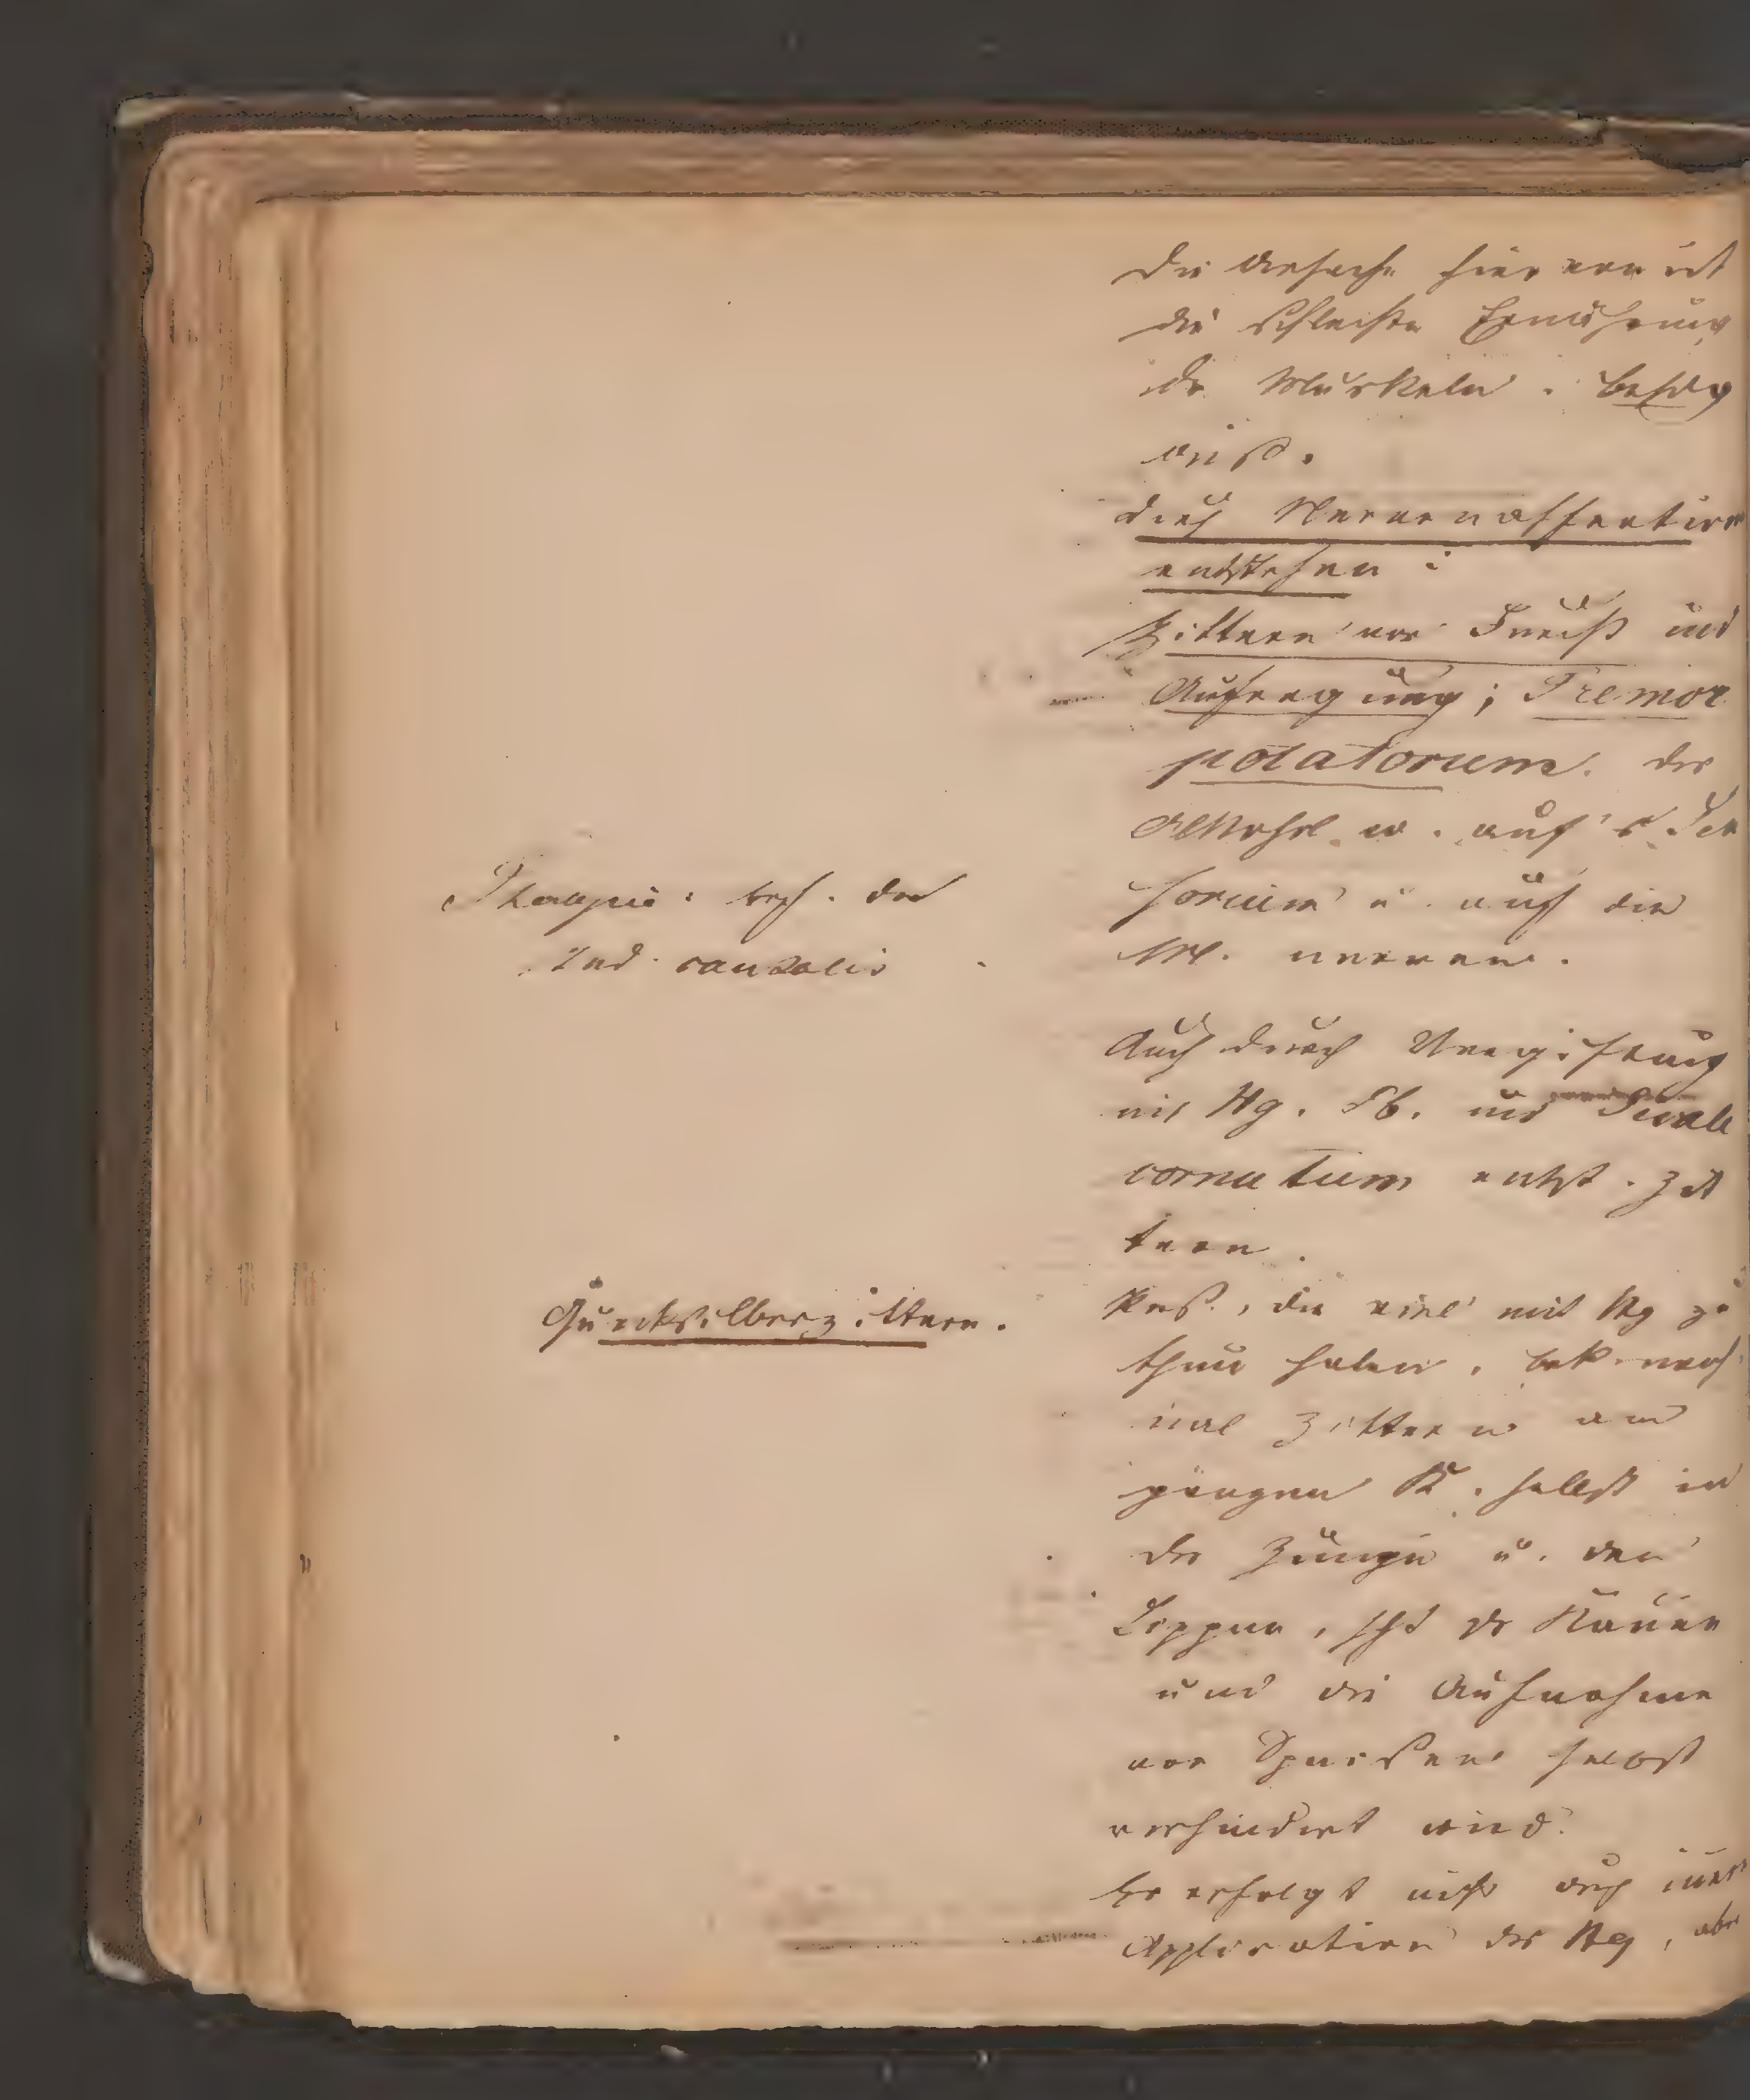 Die Ursache hiervon ist
die schlechte Ernährung
der Muskeln.
Durch Nervenaffection
entstehen:
Zittern vor Furcht und
Aufregung; Tremor
potatorum. Der
Alkohol w. auf's Sen
sorium u. auf die
M. nerven.
Therapie: besch. der
Ind. causalis
Auch durch Vergiftung
mit Hg. Pb. und Secale
cornutum entst. Zit
tern.
Quecksilberzittern.
Pers., die viel mit Hg zu
thun haben, bek.
Zittern am
ganzen K. selbst in
der Zunge u. den
Lippen, das Kauen
und die Aufnahme
von Speisen selbst
verhindert wird.
Es erfolgt nicht auf
Application des Hg, aber